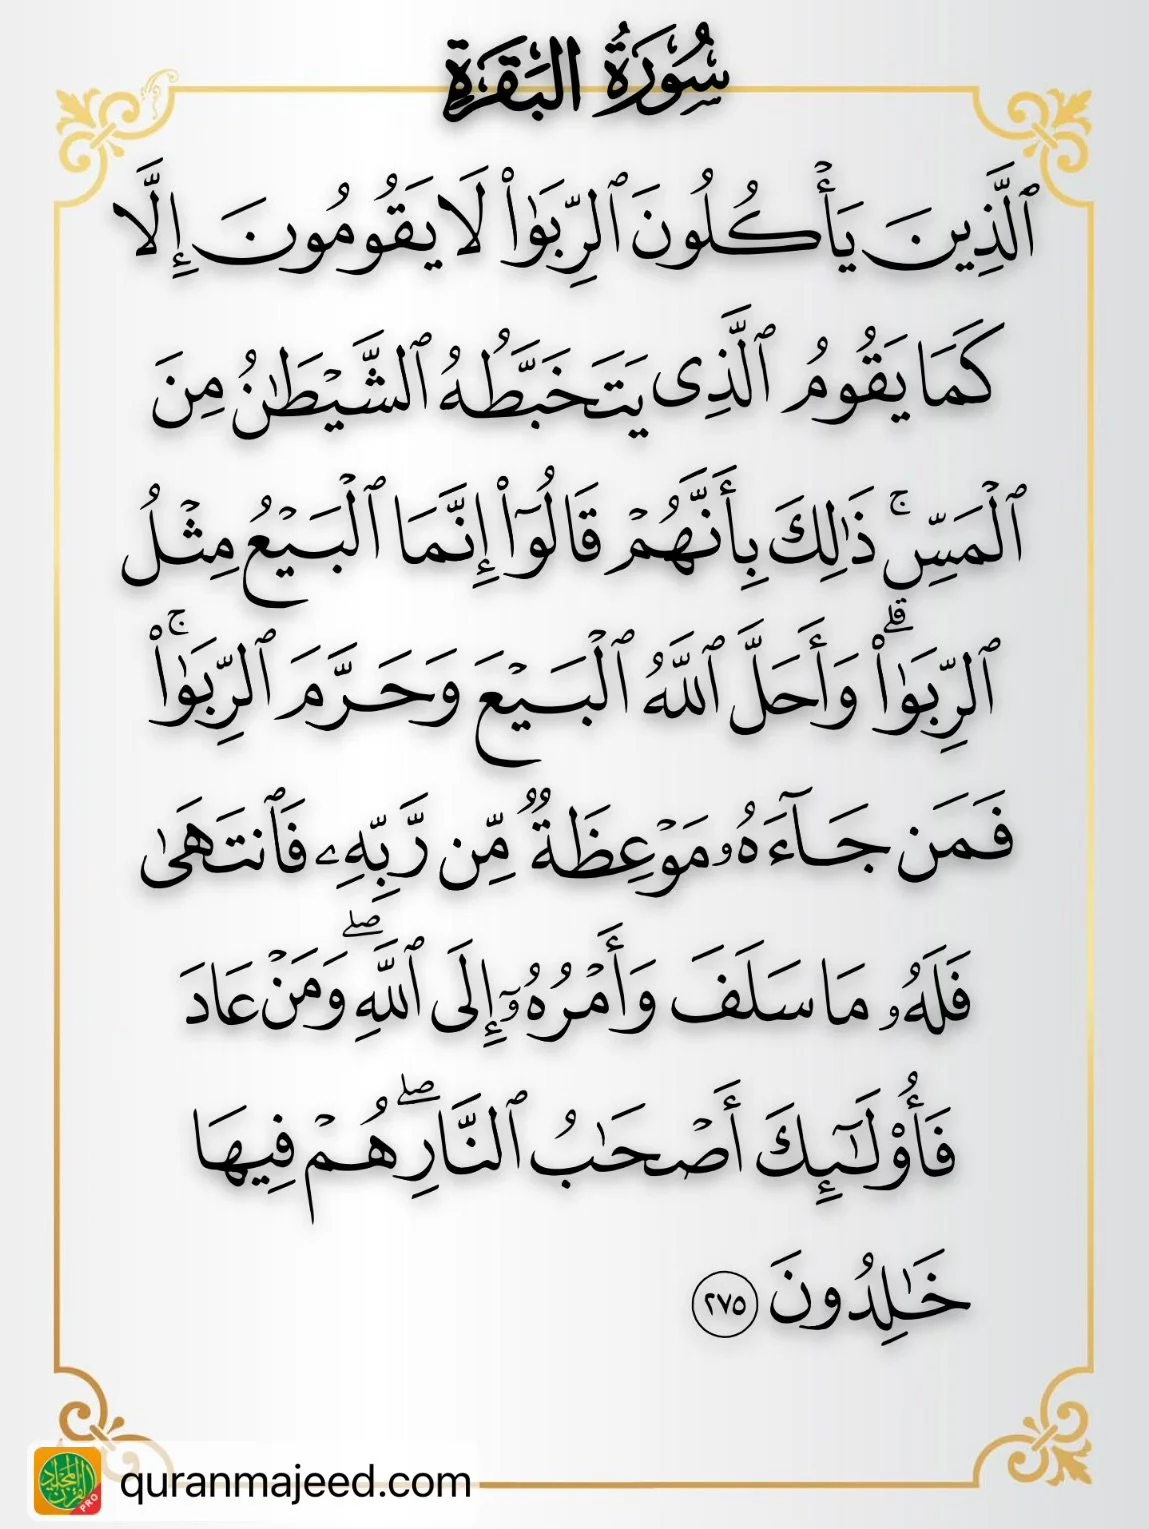 سُورَةُ البَقَرَةِ
ٱلَّذِينَ يَأۡكُلُونَ ٱلرِّبَوٰاْ لَا يَقُومُونَ إِلَّا
كَمَا يَقُومُ ٱلَّذِى يَتَخَبَّطُهُ ٱلشَّيۡطَٰنُ مِنَ
ٱلۡمَسِّۚ ذَٰلِكَ بِأَنَّهُمۡ قَالُوٓاْ إِنَّمَا ٱلۡبَيۡعُ مِثۡلُ
ٱلرِّبَوٰاْۗ وَأَحَلَّ ٱللَّهُ ٱلۡبَيۡعَ وَحَرَّمَ ٱلرِّبَوٰاْۚ
فَمَن جَآءَهُۥ مَوۡعِظَةٌ مِّن رَّبِّهِۦ فَٱنتَهَىٰ
فَلَهُۥ مَا سَلَفَ وَأَمۡرُهُۥٓ إِلَى ٱللَّهِۖ وَمَنۡ عَادَ
فَأُوْلَـٰٓئِكَ أَصۡحَٰبُ ٱلنَّارِۖ هُمۡ فِيهَا
خَٰلِدُونَ ٢٧٥
quranmajeed.com
القرآن المجيد
PRO